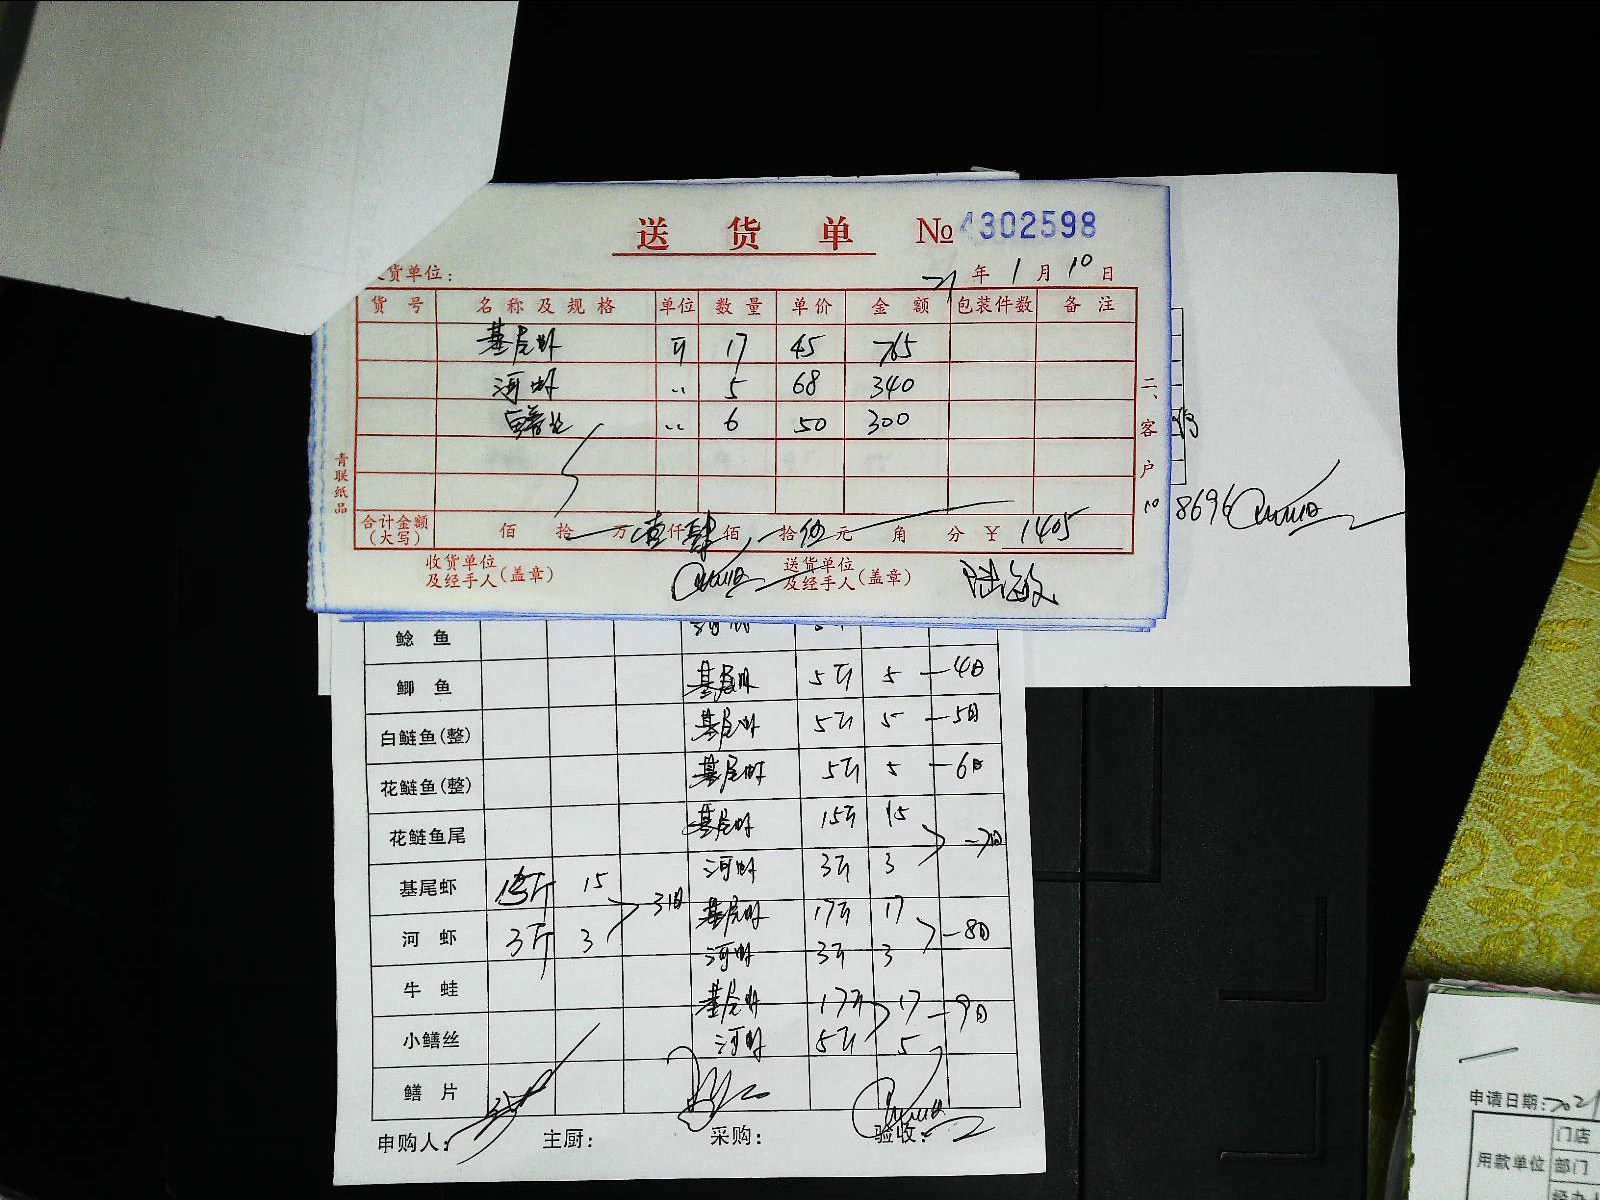 送 货 单 № 4302598
货单位： 21 年 1 月 10 日
货 号 名 称 及 规 格 单位 数 量 单价 金 额 包装件数 备 注
基尾虾 斤 17 45 765
河虾 〃 5 68 340
〃 6 50 300
合计金额（大写） 佰 拾 万 壹 仟 肆 佰 拾 伍 元 角 分 ￥ 1405
收货单位及经手人（盖章） 送货单位及经手人（盖章） 陆敏
青联纸品
二、客户
8696
鲶 鱼
鲫 鱼 基尾虾 5斤 5 —4日
白鲢鱼(整) 基尾虾 5斤 5 —5日
花鲢鱼(整) 基尾虾 5斤 5 —6日
花鲢鱼尾 基尾虾 15斤 15 —7日
河虾 3斤 3
基尾虾 15斤 15 31日
基尾虾 17斤 17 —8日
河 虾 3斤 3
河虾 3斤 3
牛 蛙 基尾虾 17斤 17 —9日
小鳝丝 河虾 5斤 5
鳝 片
申购人： 主厨： 采购： 验收：
申请日期：
用款单位 门店
部门